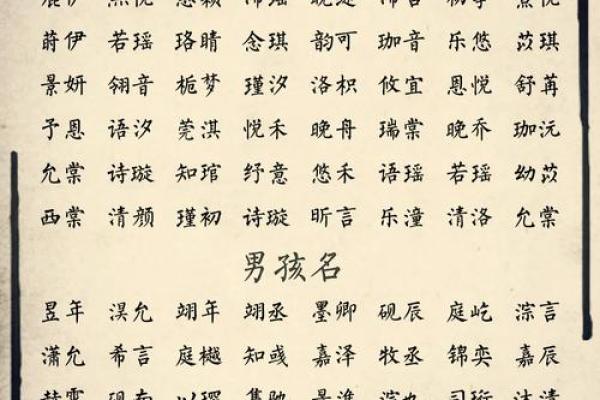 蔚伊 若瑶 珞晴 念琪 韵可 珈音 乐悠 苡琪
景妍 翎音 栀梦 瑾汐 洛枳 攸宜 恩悦 舒苒
予恩 语汐 莞淇 悦禾 晚舟 瑞棠 晚乔 珈沅
允棠 诗璇 知琯 纾意 悠禾 语瑶 若瑶 幼苡
西棠 清颜 瑾初 诗璇 昕言 乐潼 清洛 允棠
男孩名
昱年 淏允 翊年 翊丞 墨卿 砚辰 庭屹 淙言
潇允 希言 庭樾 知彧 嘉泽 牧丞 锦奕 嘉辰